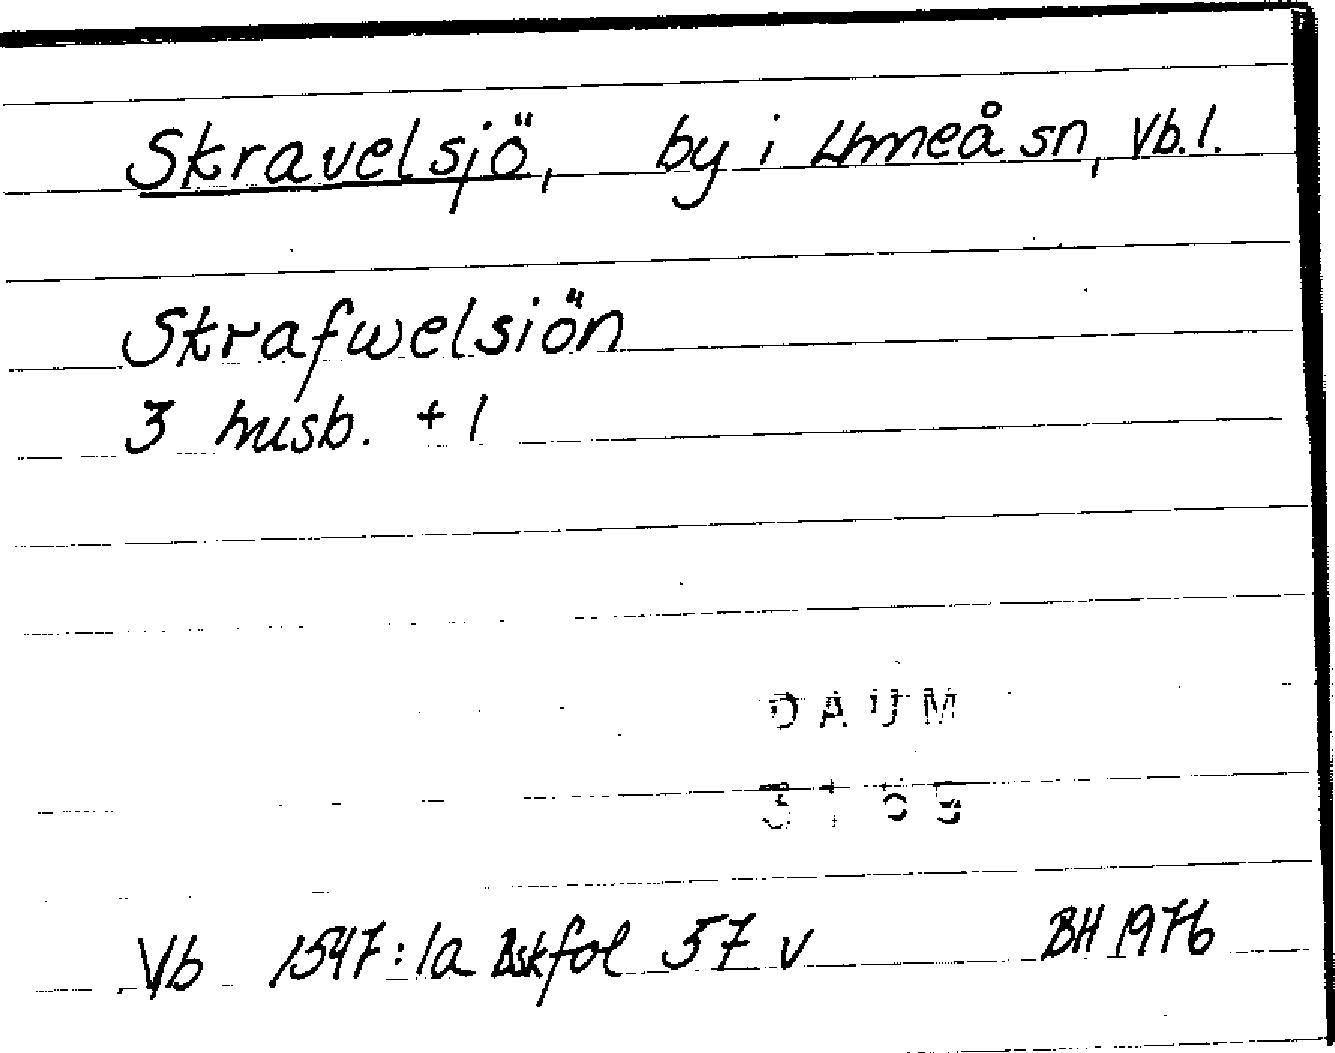 Skravelsjö, by i Umeå sn, Vb.l.
Skrafwelsiön
3 husb. + 1
DAUM
Vb 1547:1a Bskfol 57 v BH 1976